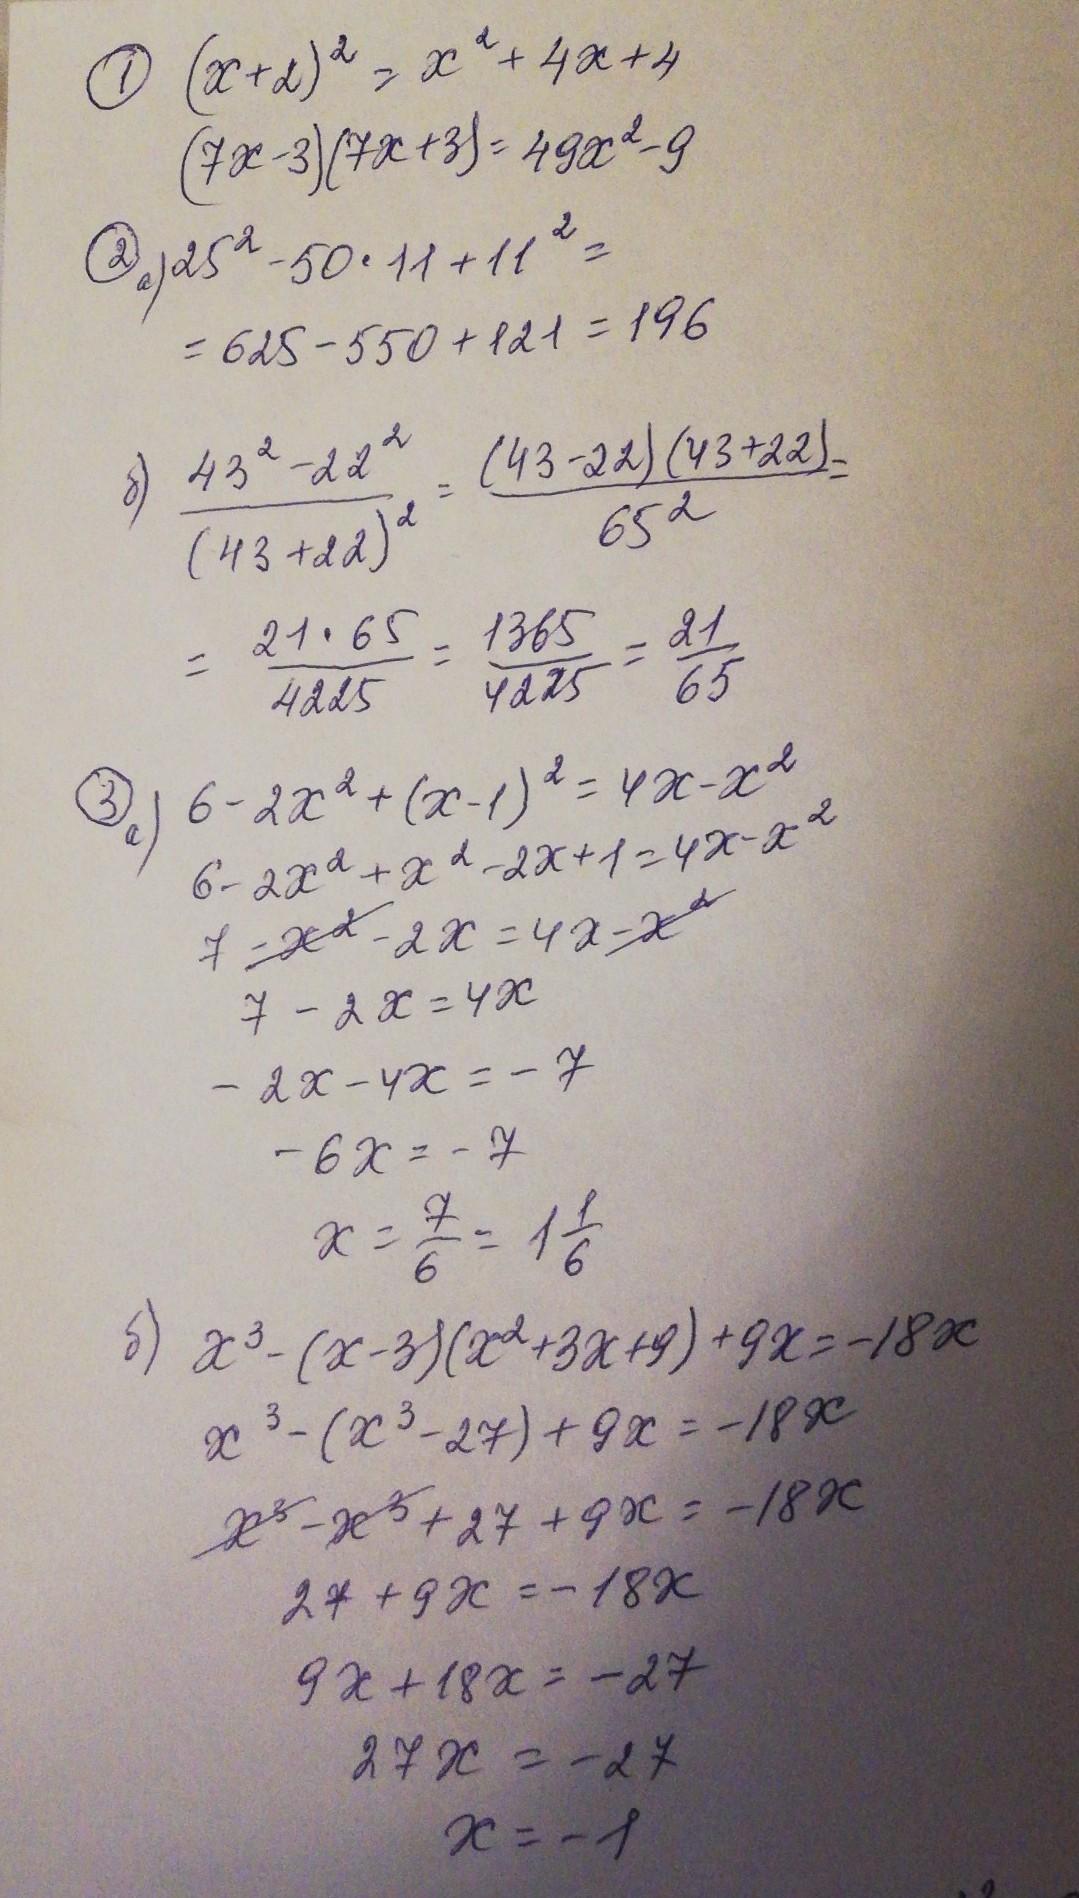 ① (x+2)² = x² + 4x + 4
(7x-3)(7x+3) = 49x² - 9
② а) 25² - 50 · 11 + 11² =
= 625 - 550 + 121 = 196
б) \frac{43² - 22²}{(43+22)²} = \frac{(43-22)(43+22)}{65²} =
= \frac{21 · 65}{4225} = \frac{1365}{4225} = \frac{21}{65}
③ а) 6 - 2x² + (x-1)² = 4x - x²
6 - 2x² + x² - 2x + 1 = 4x - x²
7 - x² - 2x = 4x - x²
7 - 2x = 4x
- 2x - 4x = - 7
- 6x = - 7
x = \frac{7}{6} = 1\frac{1}{6}
б) x³ - (x-3)(x²+3x+9) + 9x = -18x
x³ - (x³ - 27) + 9x = -18x
x³ - x³ + 27 + 9x = -18x
27 + 9x = -18x
9x + 18x = -27
27x = -27
x = -1